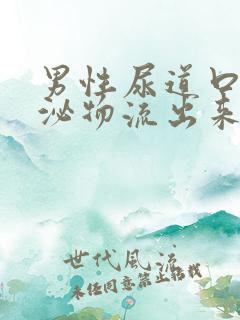 男性尿道口
泌物流出来
世代风流
未经同意禁止转载